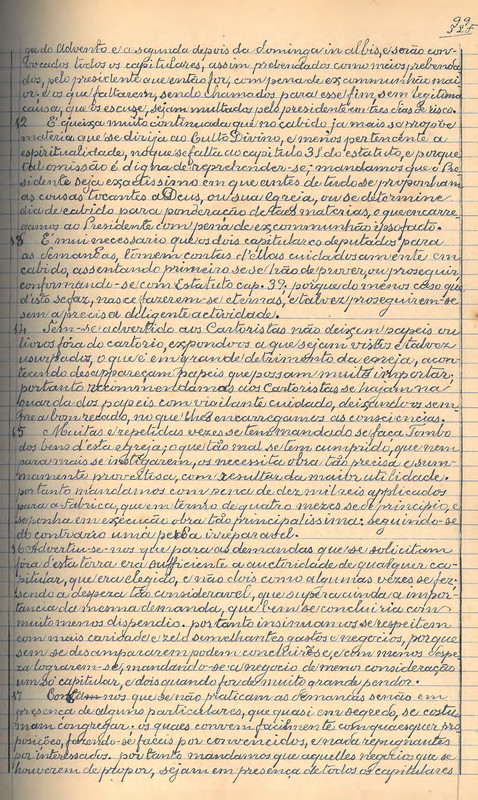 99
ga do Advento e a segunda depois da dominga in albis, e serão con-
vocados todos os capitulares, assim prebendados como meios prebenda-
dos, pelo presidente que então for, com pena de excommunhão mai-
or: e os que faltarem, sendo chamados para esse fim, sem legitima
causa, que os escuze, sejam multados pelo presidente em tres dias de risco.
12 É queixa muito continuada que no cabido já mais se propoe
materia que se dirija ao Culto Divino, e menos pertencente a
espiritualidade, no que se falta ao capitulo 31 do estatuto, e porque
tal omissão é digna de reprehender-se; mandamos que o Pre-
sidente seja exactissimo em que antes de tudo se proponham
as cousas tocantes a Deus, ou sua Egreja, ou se determine
dia de cabido para ponderação de taes materias, o que encarre-
gamos ao Presidente com pena de excommunhão ipso facto.
13 É mui necessario que os dois capitulares deputados para
as demandas, tomem contas d'ellas cuidadosamente em
cabido, assentando primeiro se se hão de mover, ou proseguir,
conformando-se com Estatuto cap. 39: porque do menos caso que
d'isto se faz, nasce fazerem-se eternas, e talvez proseguirem-se
sem a precisa deligente actividade.
14 Tem-se advertido aos Cartoristas não deixem papeis ou
livros fóra do cartorio, expondo-os a que sejam vistos e talvez
usurpados, o que é em grande detrimento da egreja, acon-
tecendo desappareçam papeis que possam muito importar;
portanto recommendamos aos Cartoristas se hajam na
guarda dos papeis com vigilante cuidado, deixando-os sem-
pre a bom recado, no que lhes encarregamos as consciencias.
15 Muitas e repetidas vezes se tem mandado se faça Tombo
dos bens d'esta egreja; o que tão mal se tem cumprido, que nem
para mais se instigarem, os necessita obra tão precisa e sum-
mamente proveitosa, com resultar da maior utilidade.
portanto mandamos com pena de dez mil reis applicados
para a Fabrica, que em termo de quatro mezes se dê principio, e
se ponha em execução obra tão principalissima: seguindo-se
do contrario uma perda irreparavel.
16 Advertiu-se-nos que para as demandas que se solicitam
fóra d'esta terra era sufficiente a auctoridade de qualquer ca-
pitular, que era elegido, e não dois como algumas vezes se fez,
sendo a despeza tão consideravel, que supera ainda a impor-
tancia da mesma demanda, que bem se concluiria com
muito menos dispendio. portanto insinuamos se respeitem
com mais caridade e zelo similhantes gastos e negocios, porque
sem se desampararem podem concluir-se, e com menos despe-
za lograrem-se, mandando-se a negocio de menor consideração
um só capitular, e dois quando for de muito grande pendor.
17 Contam-nos que se não praticam as demandas senão em
presença de alguns particulares, que quasi em segredo, se costu-
mam congregar. os quaes convem facilmente com quaesquer pro-
posições, fazendo-se faceis por convencidos, e nada repugnantes
por interessados. portanto mandamos que aquelles negocios que se
houverem de propor, sejam em presença de todos os capitulares